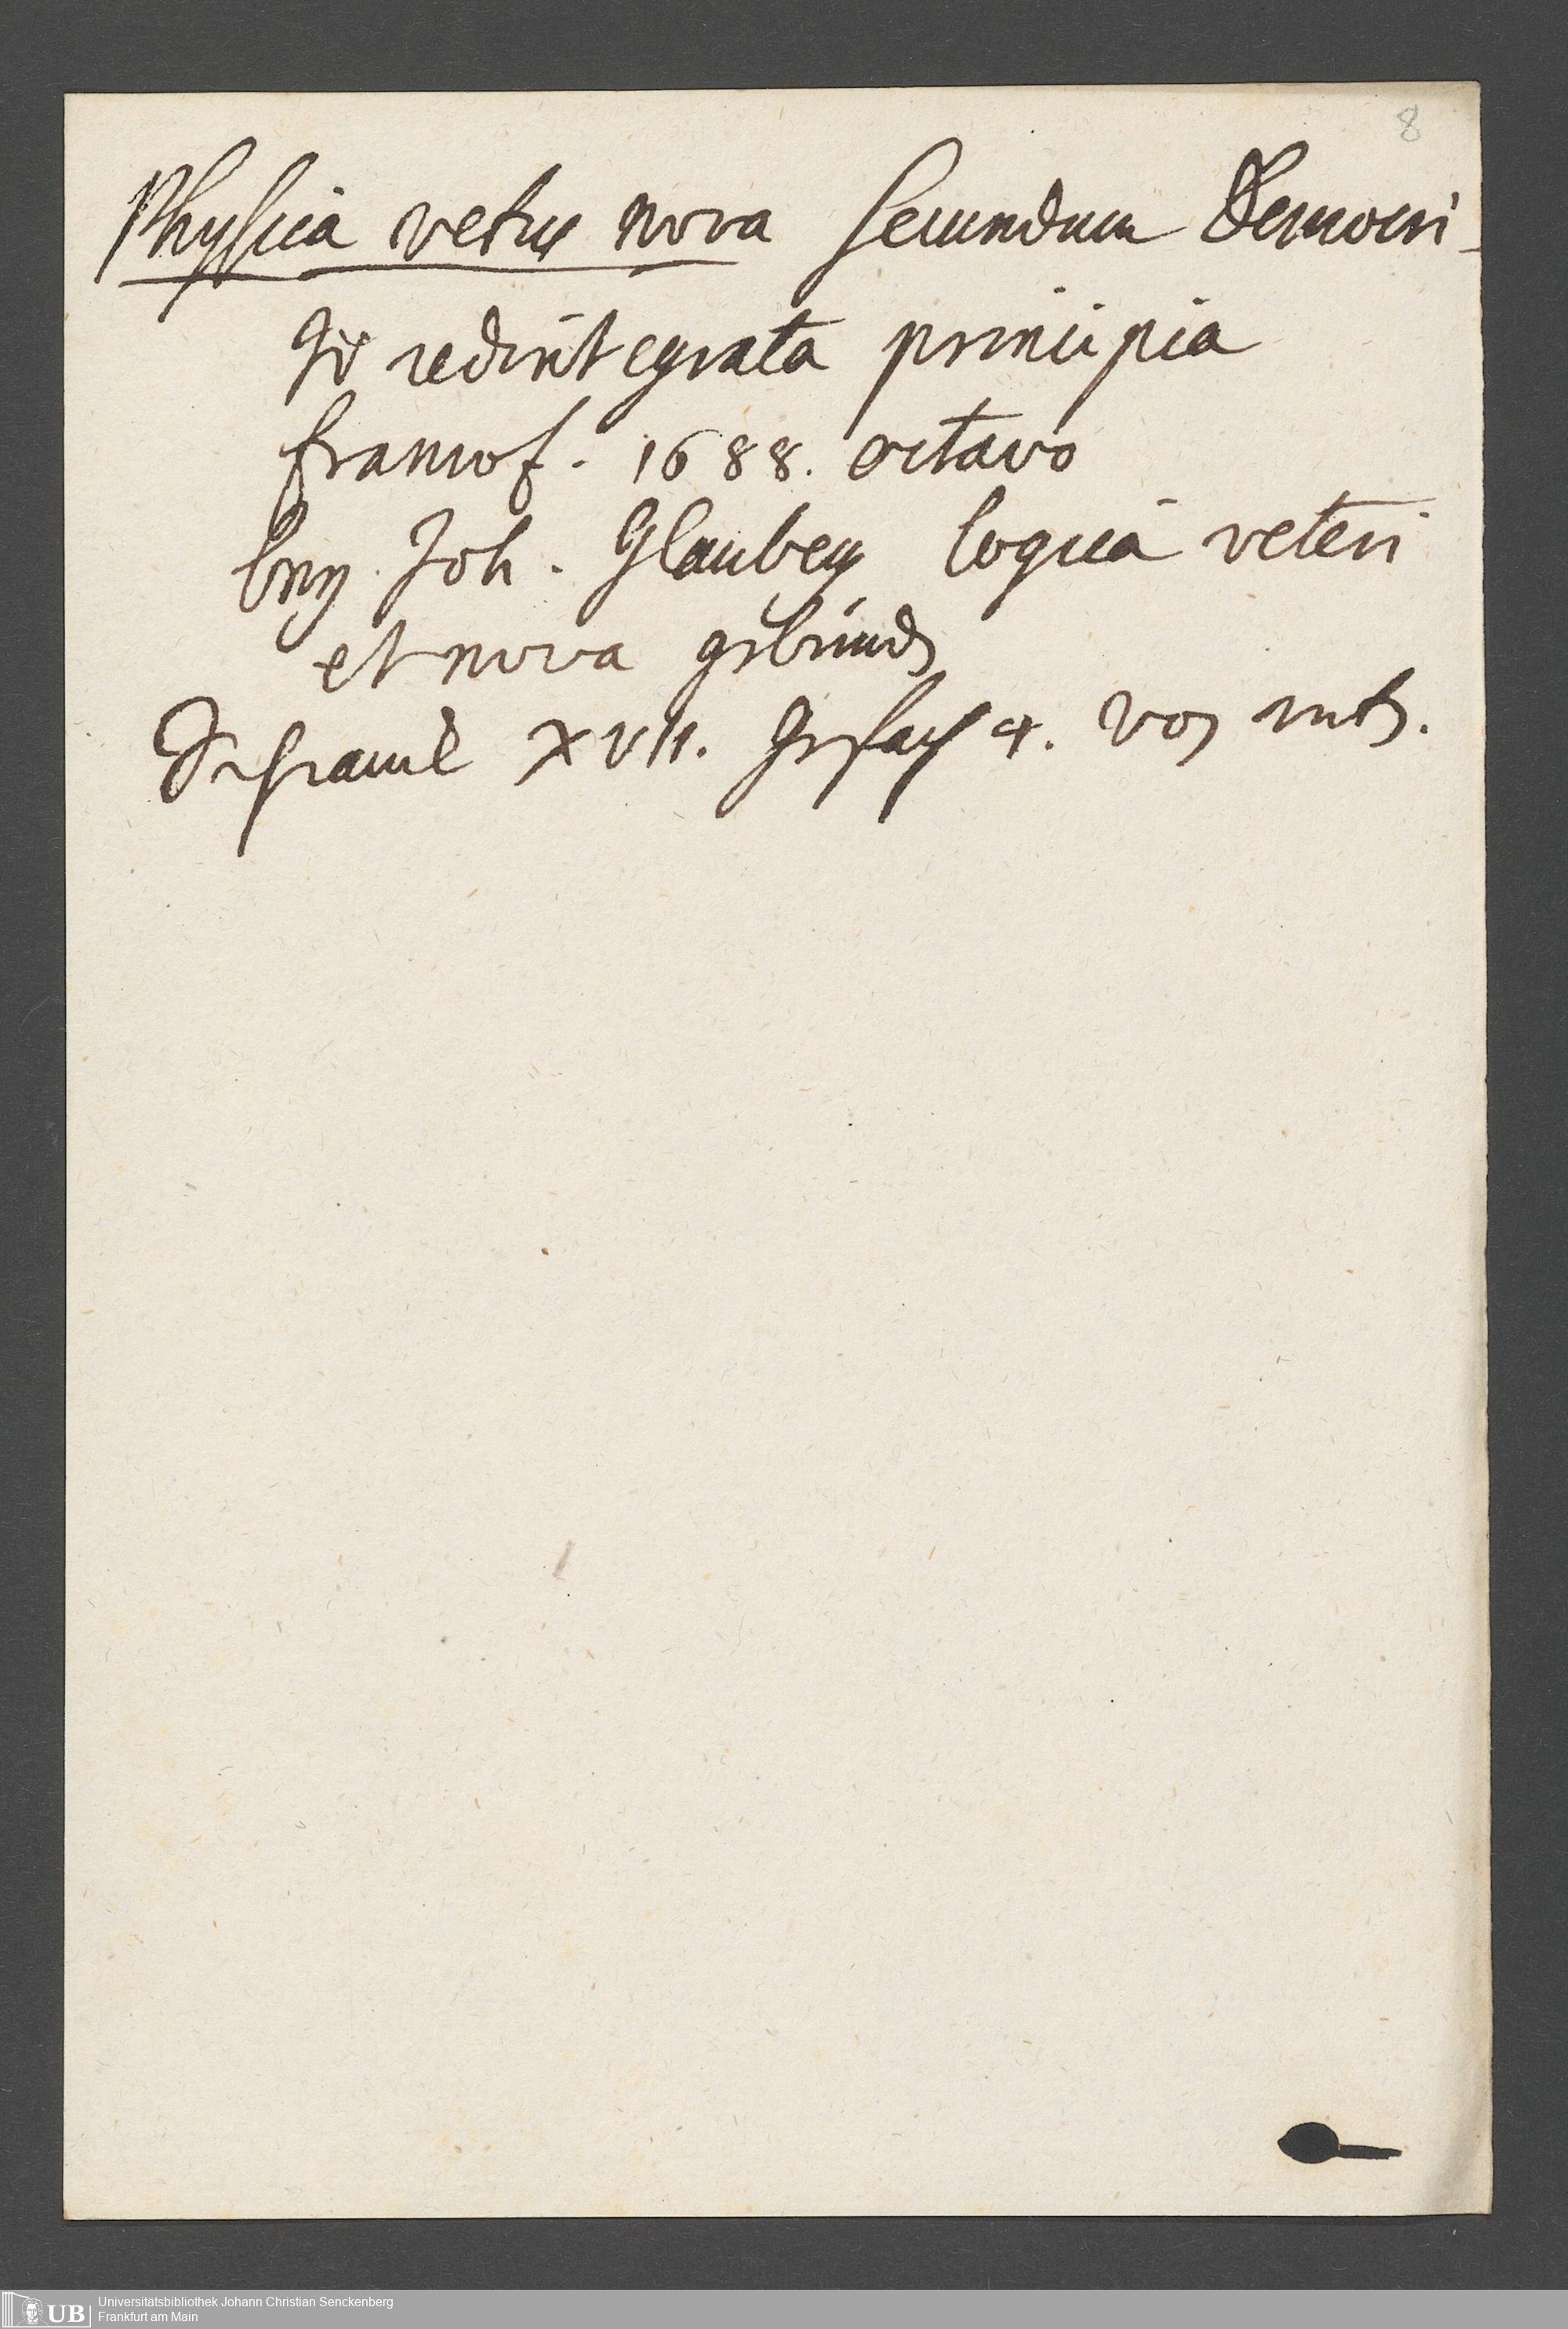 8
Physica vetus nova secundum Democri-
ti redintegrata principia
francof. 1688. octavo
bey Joh. Glaubey logica veteri
et nova gebunds
Schranck XVII. Gefach 4. Von unts.
UB Universitätsbibliothek Johann Christian Senckenberg
Frankfurt am Main